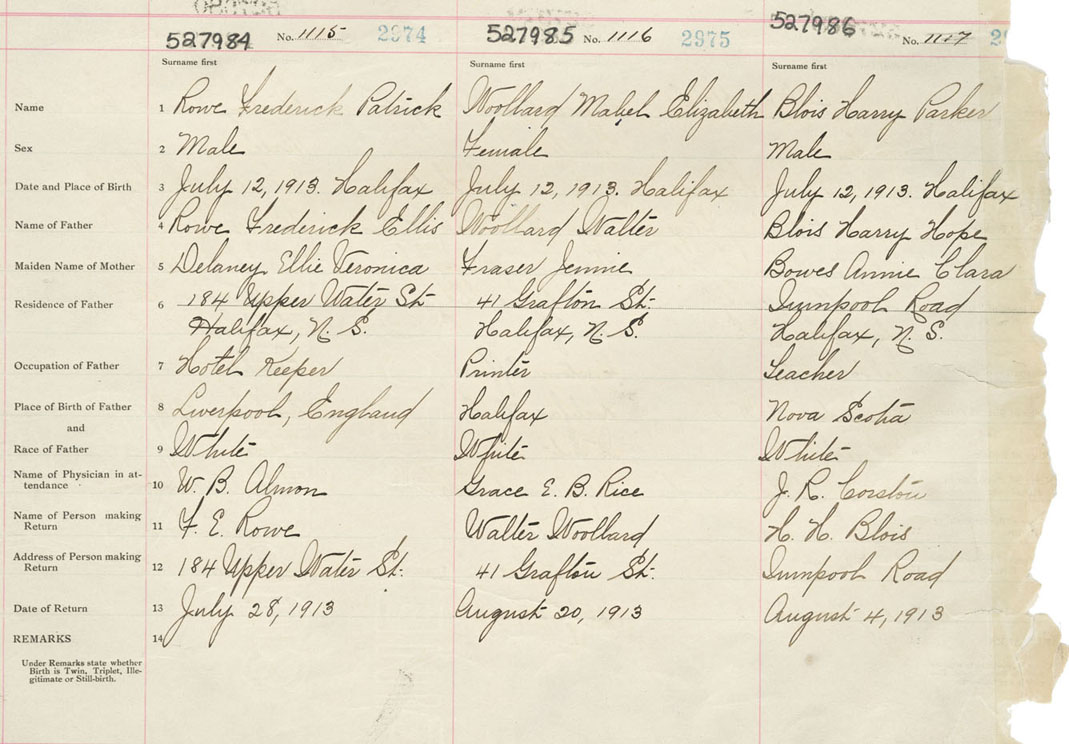 527984 No. 1115 2974 527985 No. 1116 2975 527986 No. 1117
Surname first Surname first Surname first
Name 1 Rowe Frederick Patrick Woollard Mabel Elizabeth Blois Harry Parker
Sex 2 Male Female Male
Date and Place of Birth 3 July 12, 1913. Halifax July 12, 1913. Halifax July 12, 1913. Halifax
Name of Father 4 Rowe Frederick Ellis Woollard Walter Blois Harry Hope
Maiden Name of Mother 5 Delaney Ellie Veronica Fraser Jennie Bowes Annie Clara
Residence of Father 6 184 Upper Water St. 41 Grafton St. Road
Halifax, N. S. Halifax, N. S. Halifax, N. S.
Occupation of Father 7 Hotel Keeper Printer Teacher
Place of Birth of Father 8 Liverpool, England Halifax Nova Scotia
and
Race of Father 9 White White White
Name of Physician in at-
tendance 10 W. B. Almon Grace E. B. Rice J. R. Corston
Name of Person making
Return 11 F. E. Rowe Walter Woollard H. H. Blois
Address of Person making
Return 12 184 Upper Water St. 41 Grafton St. Road
Date of Return 13 July 28, 1913 August 20, 1913 August 4, 1913
REMARKS 14
Under Remarks state whether
Birth is Twin, Triplet, Ille-
gitimate or Still-birth.